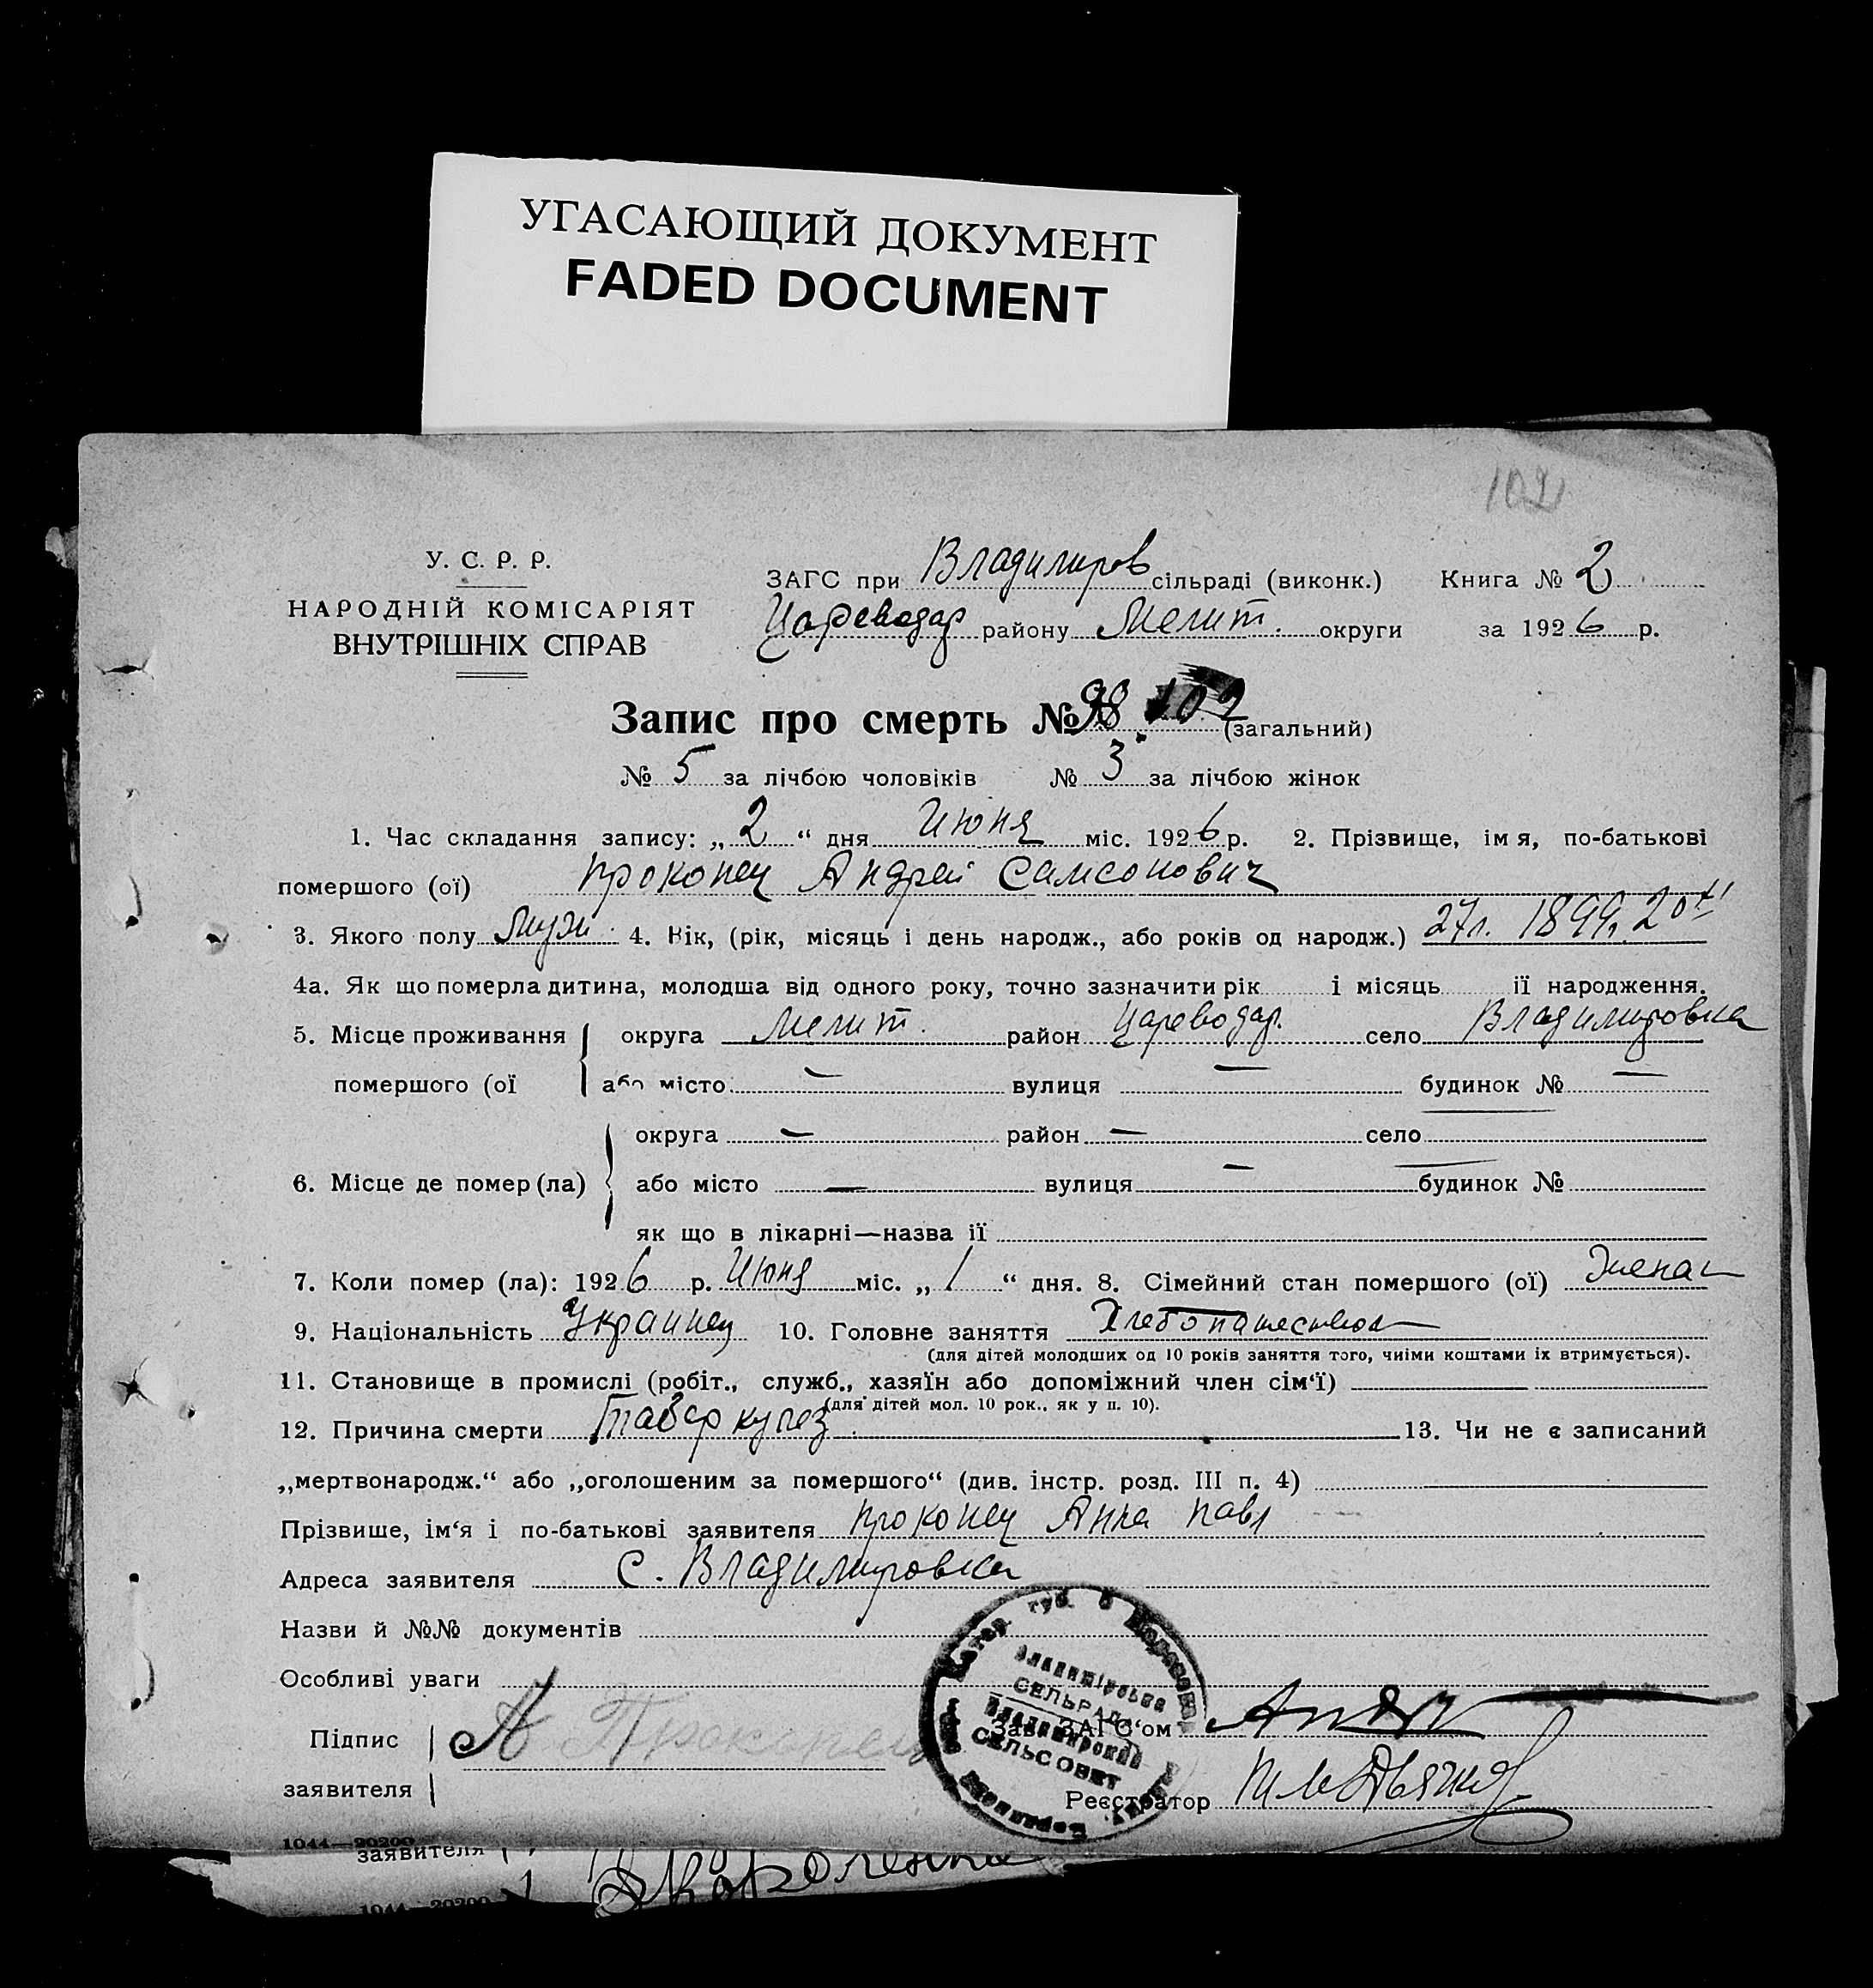 УГАСАЮЩИЙ ДОКУМЕНТ
FADED DOCUMENT
102
У. С. Р. Р.
НАРОДНІЙ КОМІСАРІЯТ
ВНУТРІШНІХ СПРАВ
ЗАГС при Владимиров сільраді (виконк.) Книга № 2
Цареводар району Мелит. округи за 1926 р.
Запис про смерть № 98 102 (загальний)
№ 5 за лічбою чоловіків № 3 за лічбою жінок
1. Час складання запису: „2“ дня Июня міс. 1926 р. 2. Прізвище, імя, по-батькові
помершого (ої) Проконец Андрей Самсонович
3. Якого полу Муж. 4. Вік, (рік, місяць і день народж., або років од народж.) 27л. 1899.
4а. Як що померла дитина, молодша від одного року, точно зазначити рік і місяць її народження.
5. Місце проживання округа Мелит. район Цареводар. село Владимировка
помершого (ої або місто — вулиця — будинок № —
округа — район — село
6. Місце де помер (ла) або місто — вулиця — будинок №
як що в лікарні—назва її
7. Коли помер (ла): 1926 р. Июня міс. „1“ дня. 8. Сімейний стан помершого (ої) Женат
9. Національність Украинец 10. Головне заняття Хлебопашество
(для дітей молодших од 10 років заняття того, чиїми коштами їх втримується).
11. Становище в промислі (робіт., служб., хазяїн або допоміжний член сім‘ї)
(для дітей мол. 10 рок.. як у п. 10).
12. Причина смерти Тавэркулез 13. Чи не є записаний
„мертвонародж.“ або „оголошеним за помершого“ (див. інстр. розд. III п. 4)
Прізвише, ім‘я і по-батькові заявителя Проконец Анна Павл
Адреса заявителя С. Владимировка
Назви й №№ документів
Особливі уваги
Підпис А
заявителя
Владимірська
СЕЛЬРАДА
Владимирский
СЕЛЬСОВЕТ
Зав. ЗАГС‘ом
Реєстратор
1044—20200
заявителя
1044—20200